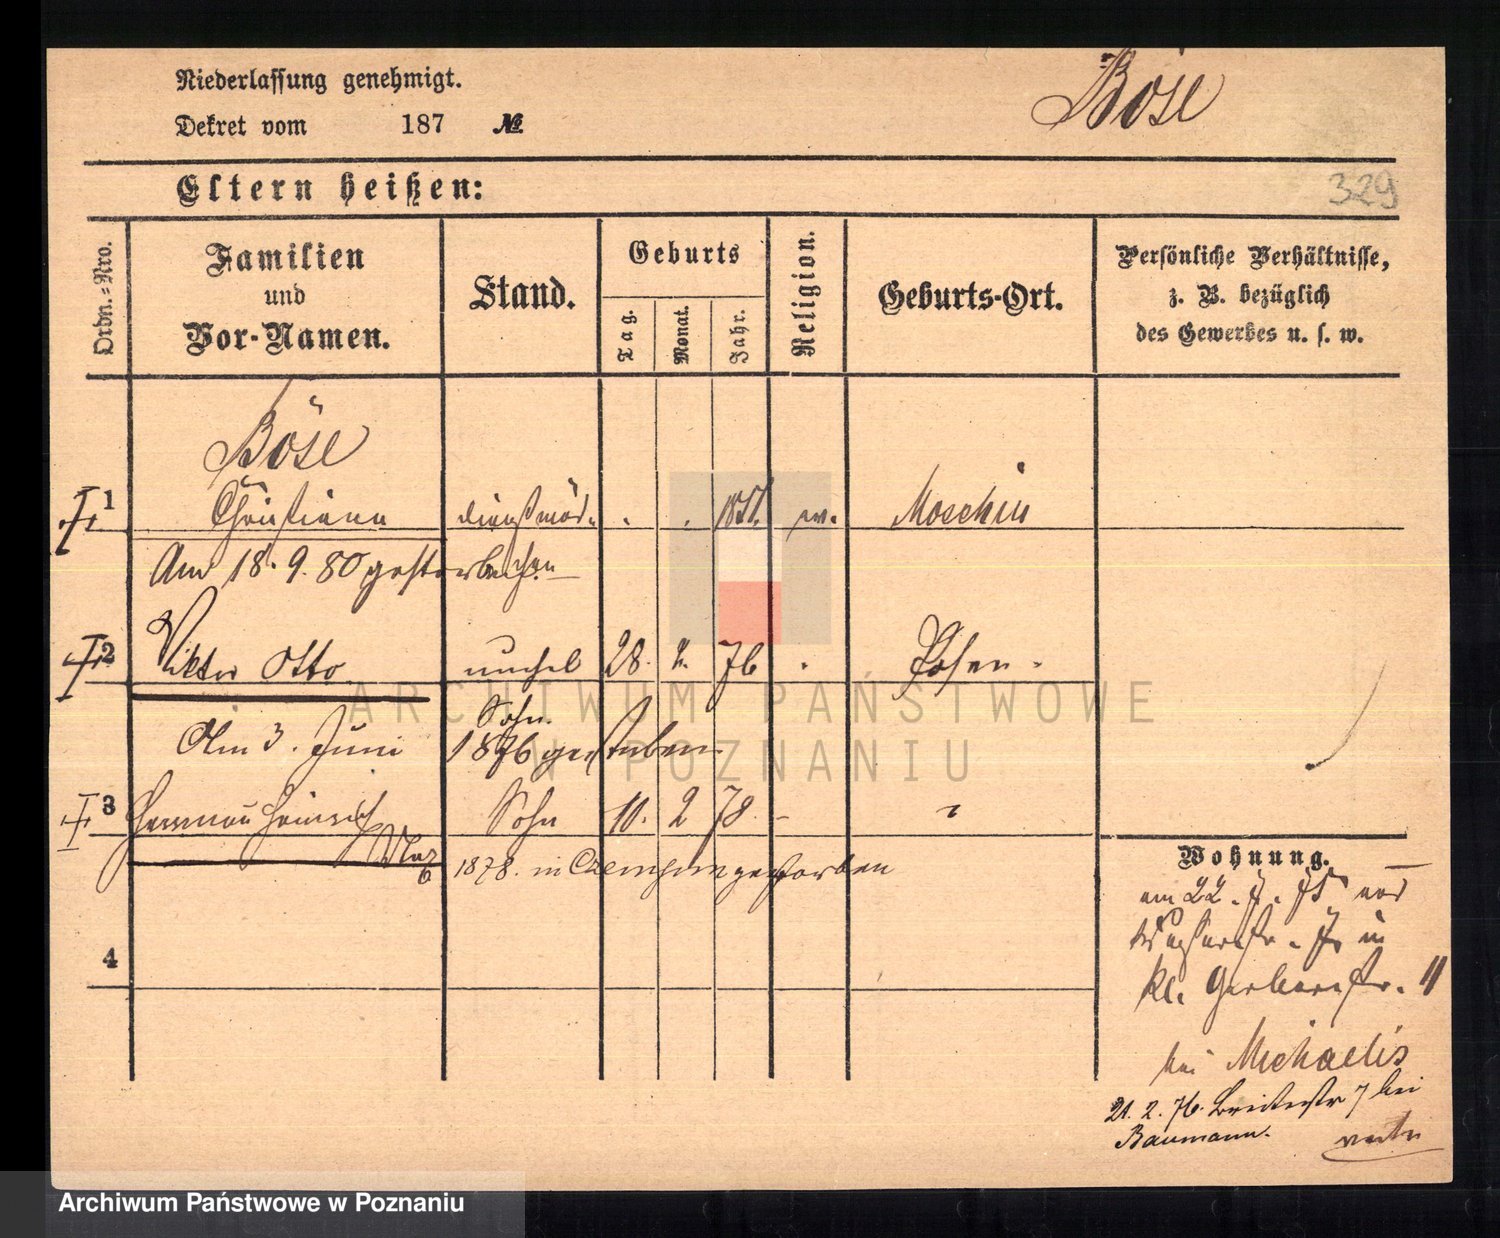 Böse
Niederlassung genehmigt.
Dekret vom 187 №
Eltern heißen:
329
Ordn.-Nro.
Familien
und
Vor-Namen.
Stand.
Geburts
Tag.
Monat.
Jahr.
Religion.
Geburts-Ort.
Persönliche Verhältnisse,
z. B. bezüglich
des Gewerbes u. s. w.
Böse
1 Christiana
Moschin
Am 18. 9. 80 gestorben
2 Viktor Otto 28. 2. 76 Posen.
Sohn.
Am 3. Juni 1876 gestorben
3 Herman Heinrich Sohn 10. 2 78
1878. in gestorben
4
Wohnung.
am 22. 7. 75 von
7 in
kl. Gerberstr. 11
bei Michaelis
21. 2. 76. Breitestr 7 bei
Baumann.
ARCHIWUM PAŃSTWOWE
W POZNANIU
Archiwum Państwowe w Poznaniu